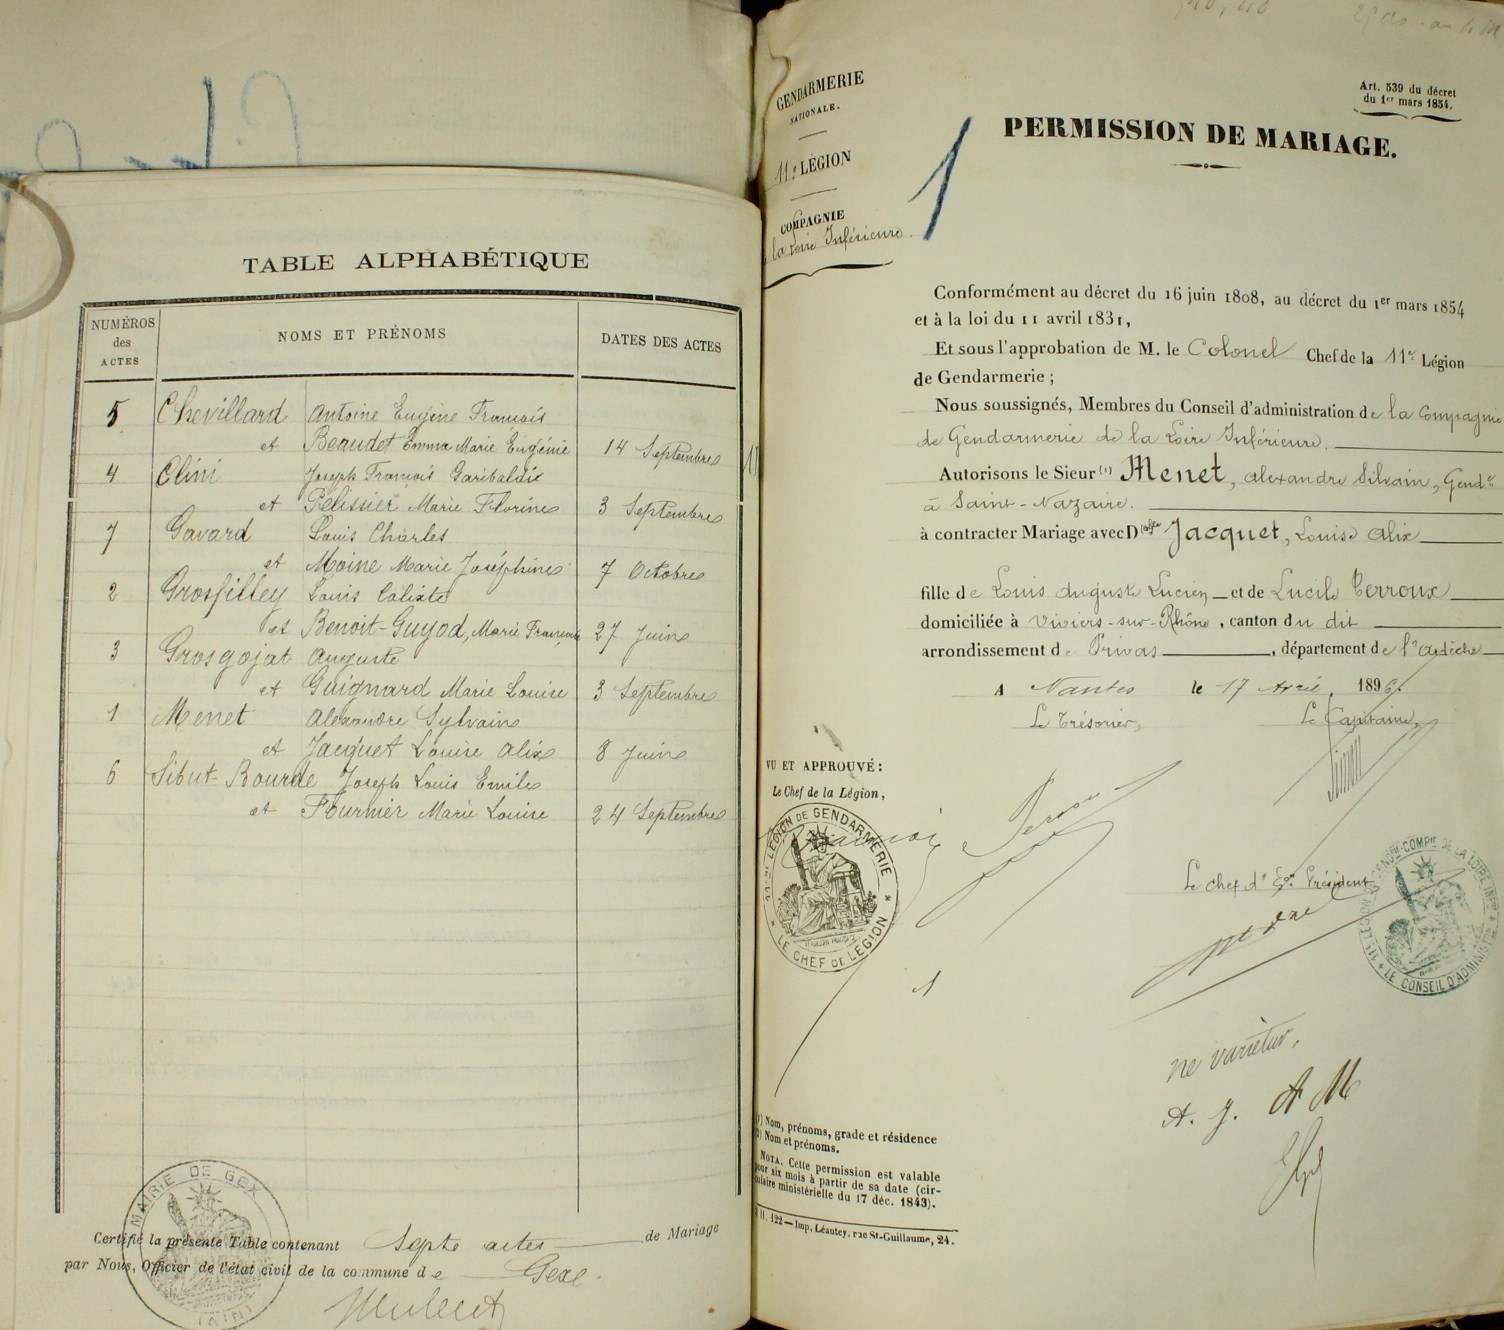 TABLE ALPHABÉTIQUE
NUMÉROS des ACTES
NOMS ET PRÉNOMS
DATES DES ACTES
5 Chevillard Antoine Eugène François
et Beaudet Emma Marie Eugénie 14 Septembre
4 Clini Joseph François Garibaldi
et Pélissier Marie Florine 3 Septembre
7 Gavard Louis Charles
et Moine Marie Joséphine 7 Octobre
2 Grosfilley Louis Calixte
et Benoit-Guyod, Marie Françoise 27 Juin
3 Grosgojat Auguste
et Guignard Marie Louise 3 Septembre
1 Menet Alexandre Sylvain
et Jacquet Louise Alix 8 Juin
6 Sibut-Bourde Joseph Louis Emile
et Fournier Marie Louise 24 Septembre
MAIRIE DE GEX
(AIN)
Certifié la présente Table contenant Septe actes de Mariage
par Nous, Officier de l'état civil de la commune de Gex.
GENDARMERIE
NATIONALE.
11e LÉGION
COMPAGNIE
la Loire Inférieure.
1
Art. 539 du décret
du 1er mars 1854.
PERMISSION DE MARIAGE.
Conformément au décret du 16 juin 1808, au décret du 1er mars 1854
et à la loi du 11 avril 1831,
Et sous l'approbation de M. le Colonel Chef de la 11e Légion
de Gendarmerie ;
Nous soussignés, Membres du Conseil d'administration de la Compagnie
de Gendarmerie de la Loire Inférieure.
Autorisons le Sieur (1) Menet, Alexandre Silvain, Gend.e
à Saint-Nazaire.
à contracter Mariage avec Delle Jacquet, Louise Alix
fille de Louis Auguste Lucien et de Lucile Terroux
domiciliée à Viviers-sur-Rhône, canton du dit
arrondissement de Privas, département de l'Ardèche
A Nantes le 17 Avril, 1896.
Le Trésorier, Le Capitaine,
VU ET APPROUVÉ :
Le Chef de la Légion,
LÉGION DE GENDARMERIE
LE CHEF DE LÉGION
Le Chef d'Eon Président
LE CONSEIL D'ADMINISTR
ne varietur,
A. J. A M
(1) Nom, prénoms, grade et résidence
(2) Nom et prénoms.
NOTA. Cette permission est valable
pour six mois à partir de sa date (cir-
culaire ministérielle du 17 déc. 1843).
122 — Imp. Léautey, rue St-Guillaume, 24.